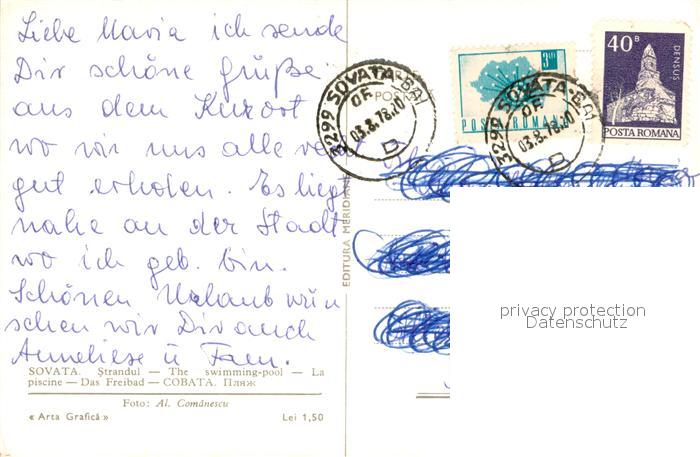 Liebe Maria ich sende
Dir schöne Grüße
aus dem Kurort
wo wir uns alle
gut erholen. Es liegt
nahe an der Stadt
wo ich geb. bin.
Schönen Urlaub wün
schen wir Dir auch
Anneliese u Fam.
SOVATA. Ştrandul — The swimming-pool — La
piscine — Das Freibad — СОВАТА. Пляж
Foto: Al. Comănescu
« Arta Grafică » Lei 1,50
EDITURA MERIDIANE
3299 SOVATA-BAI
OF
03.8.78.20
B
POSTA ROMANA
3299 SOVATA-BAI
OF
03.8.78.20
B
40B
DENSUS
POSTA ROMANA
privacy protection
Datenschutz